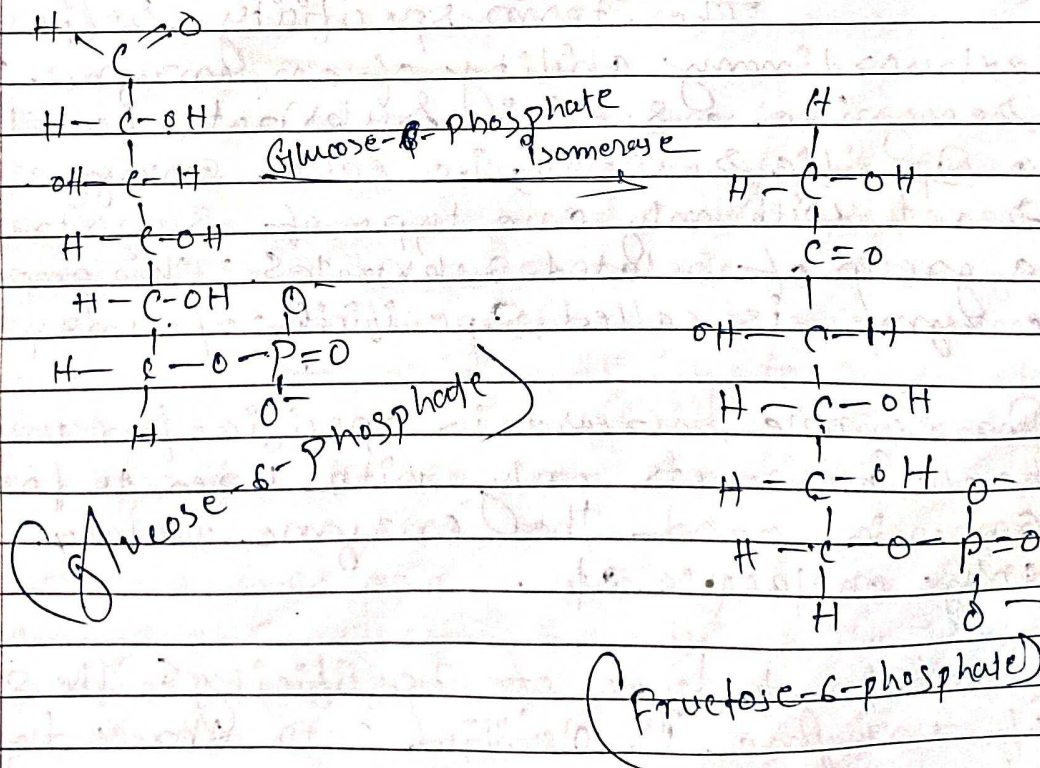 H C=O
H-C-OH
OH-C-H
H-C-OH
H-C-OH O⁻
H-C-O-P=O
H O⁻
(glucose-6-phosphate)
Glucose-6-phosphate
isomerase
H
H-C-OH
C=O
OH-C-H
H-C-OH
H-C-OH O⁻
H-C-O-P=O
H O⁻
(Fructose-6-phosphate)